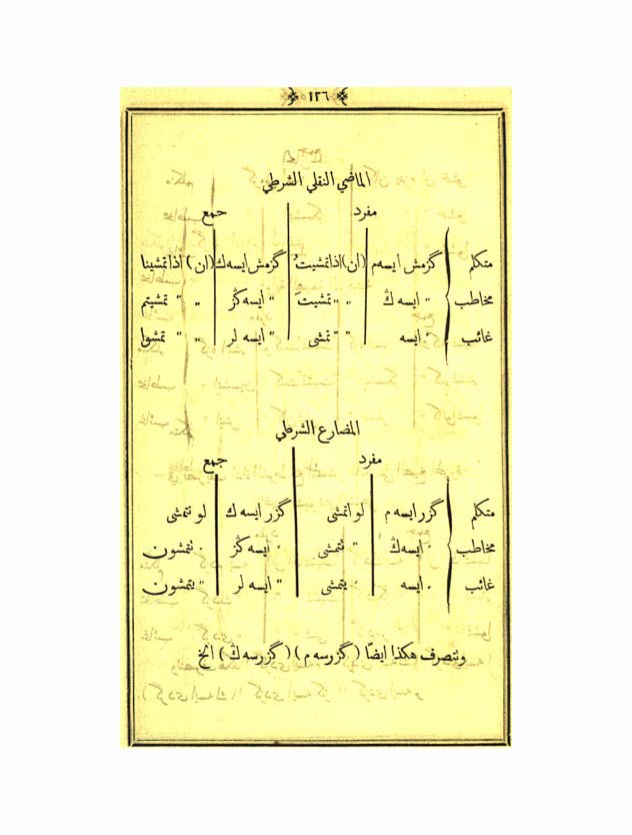 ١٢٦
الماضي النقلي الشرطي
مفرد جمع
متكلم گزمش ايسه م (ان) اذا تمشيتُ گزمش ايسه ك (ان) اذا تمشينا
مخاطب " ايسه ڭ " " تمشيتَ " ايسه ڭز " " تمشيتم
غائب " ايسه " " تمشى " ايسه لر " " تمشوا
المضارع الشرطي
مفرد جمع
متكلم گزر ايسه م لو اتمشى گزر ايسه ك لو نتمشى
مخاطب " ايسه ڭ " تتمشى " ايسه ڭز " تتمشون
غائب " ايسه " يتمشى " ايسه لر " يتمشون
وتتصرف هكذا ايضًا (گزرسه م) (گزرسه ڭ) الخ